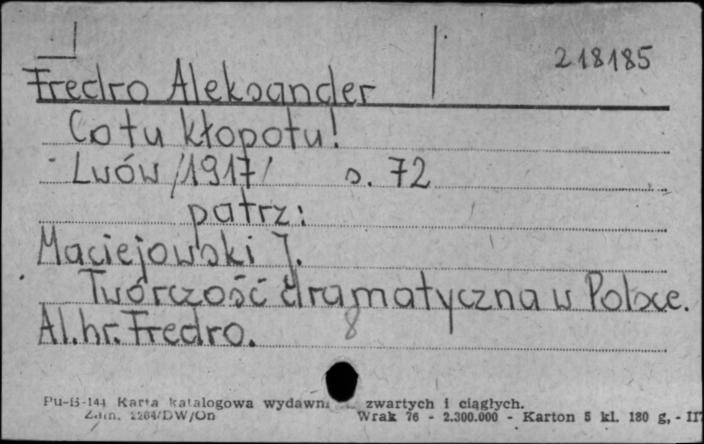 218185
Fredro Aleksander
Co tu kłopotu!
Lwów /1917/ s. 72
patrz:
Maciejowski J.
Twórczość dramatyczna w Polsce.
Al. hr. Fredro. 8
Pu-B-144 Karta katalogowa wydawn. zwartych i ciągłych.
Zam. 2264/DW/On Wrak 76 - 2.300.000 - Karton 5 kl. 180 g, - III